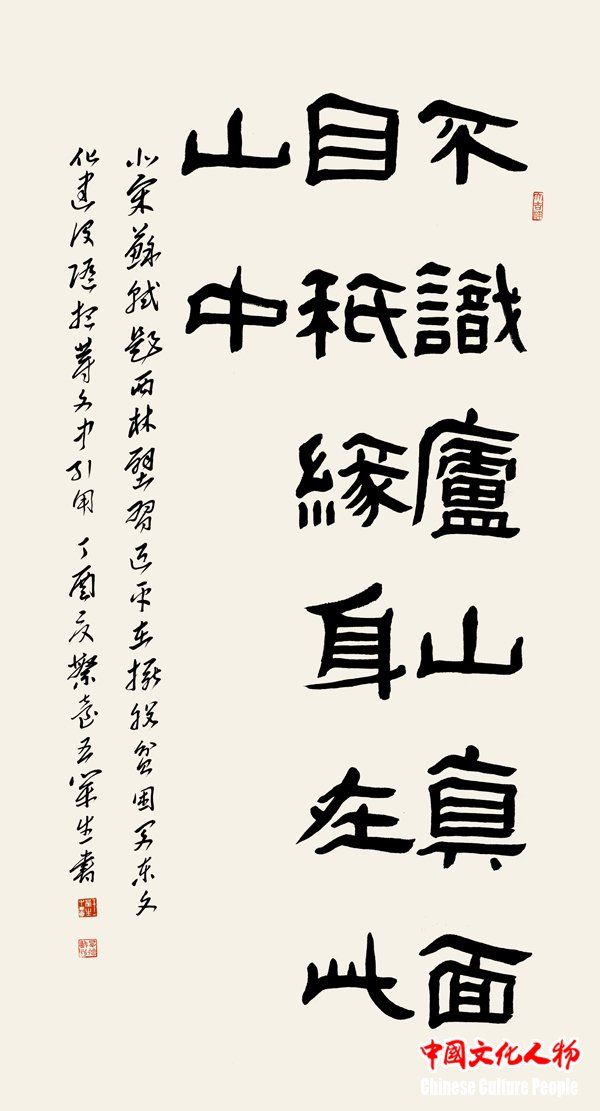 不識廬山真面
目秖緣身在此
山中
北宋蘇軾題西林壁習近平在擺脫貧困閩東文
化建設隨想等文中引用 丁酉夏 生書
中國文化人物
Chinese Culture People